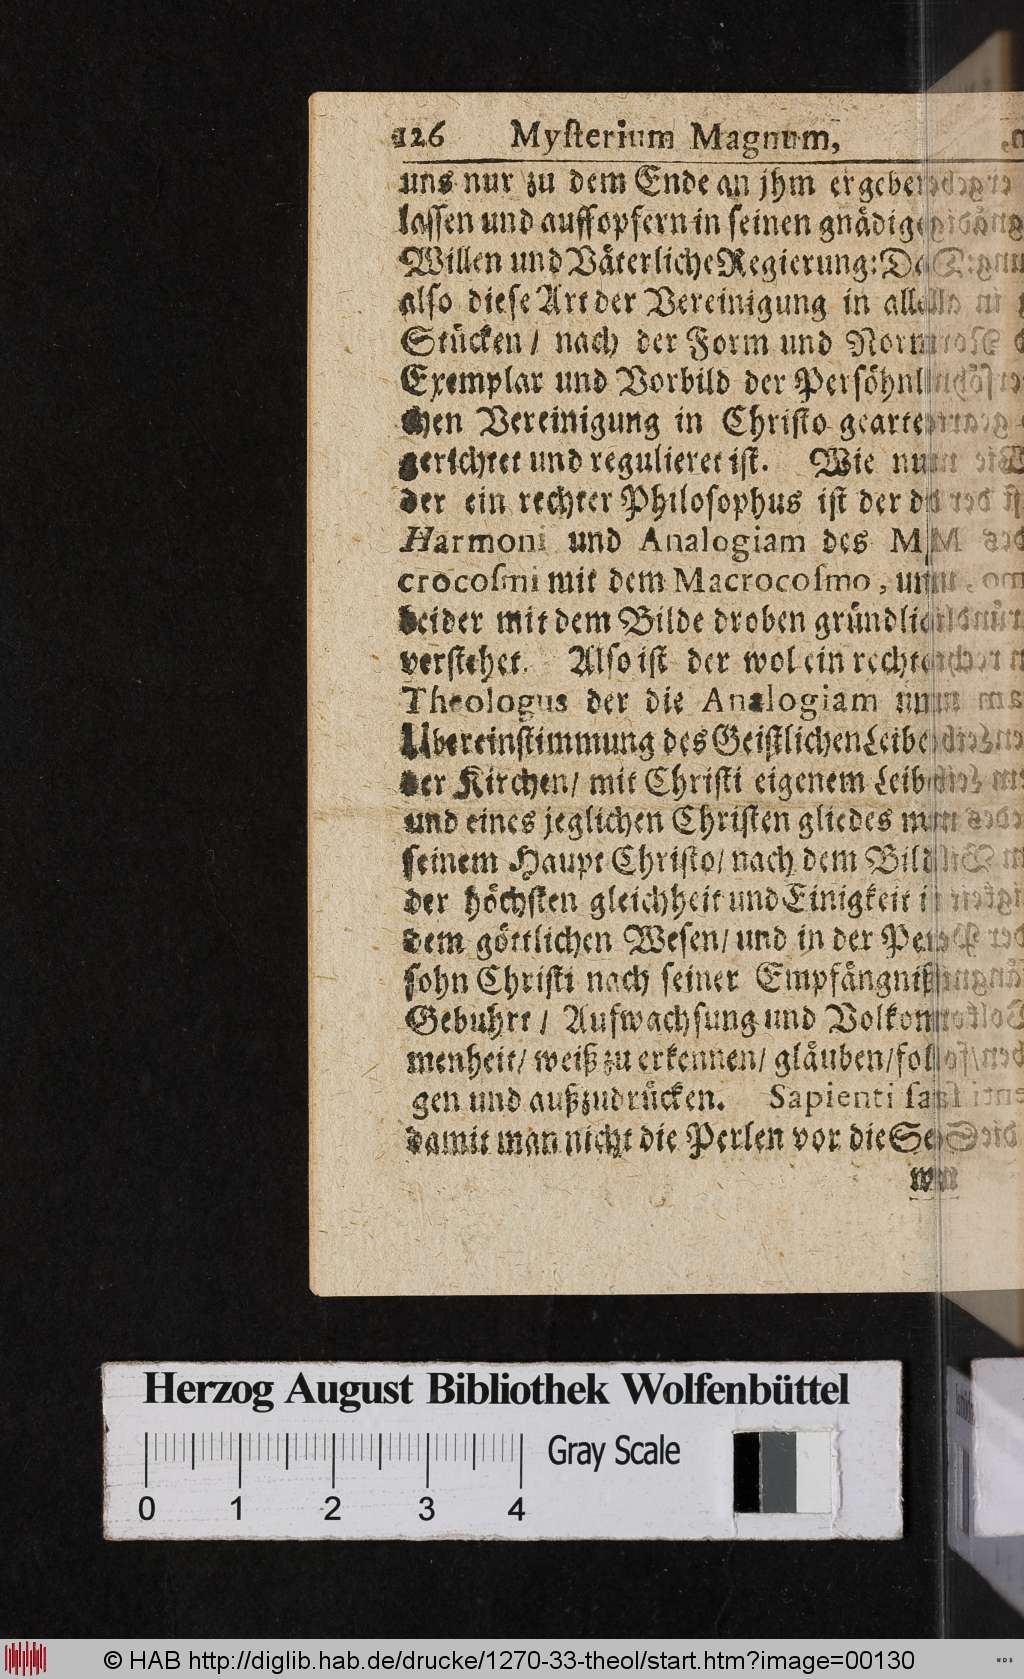 126 Mysterium Magnum,
uns nur zu dem Ende an jhm ergeben
lassen und auffopfern in seinen gnädigen
Willen und Väterliche Regierung: Daß
also diese Art der Vereinigung in allen
Stücken / nach der Form und Norm
Exemplar und Vorbild der Persöhnli-
chen Vereinigung in Christo geartet
gerichtet und regulieret ist. Wie nun
der ein rechter Philosophus ist der die
Harmoni und Analogiam des Mi-
crocosmi mit dem Macrocosmo, und
beider mit dem Bilde droben gründlich
verstehet. Also ist der wol ein rechter
Theologus der die Analogiam und
Ubereinstimmung des Geistlichen Leibes
der Kirchen / mit Christi eigenem Leib
und eines jeglichen Christen gliedes mit
seinem Haupt Christo / nach dem Bild
der höchsten gleichheit und Einigkeit in
dem göttlichen Wesen / und in der Per-
sohn Christi nach seiner Empfängniß
Gebuhrt / Aufwachsung und Volkom-
menheit / weiß zu erkennen / gläuben / fol-
gen und außzudrücken. Sapienti sat
damit man nicht die Perlen vor die Se
Herzog August Bibliothek Wolfenbüttel
0 1 2 3 4 Gray Scale
© HAB http://diglib.hab.de/drucke/1270-33-theol/start.htm?image=00130